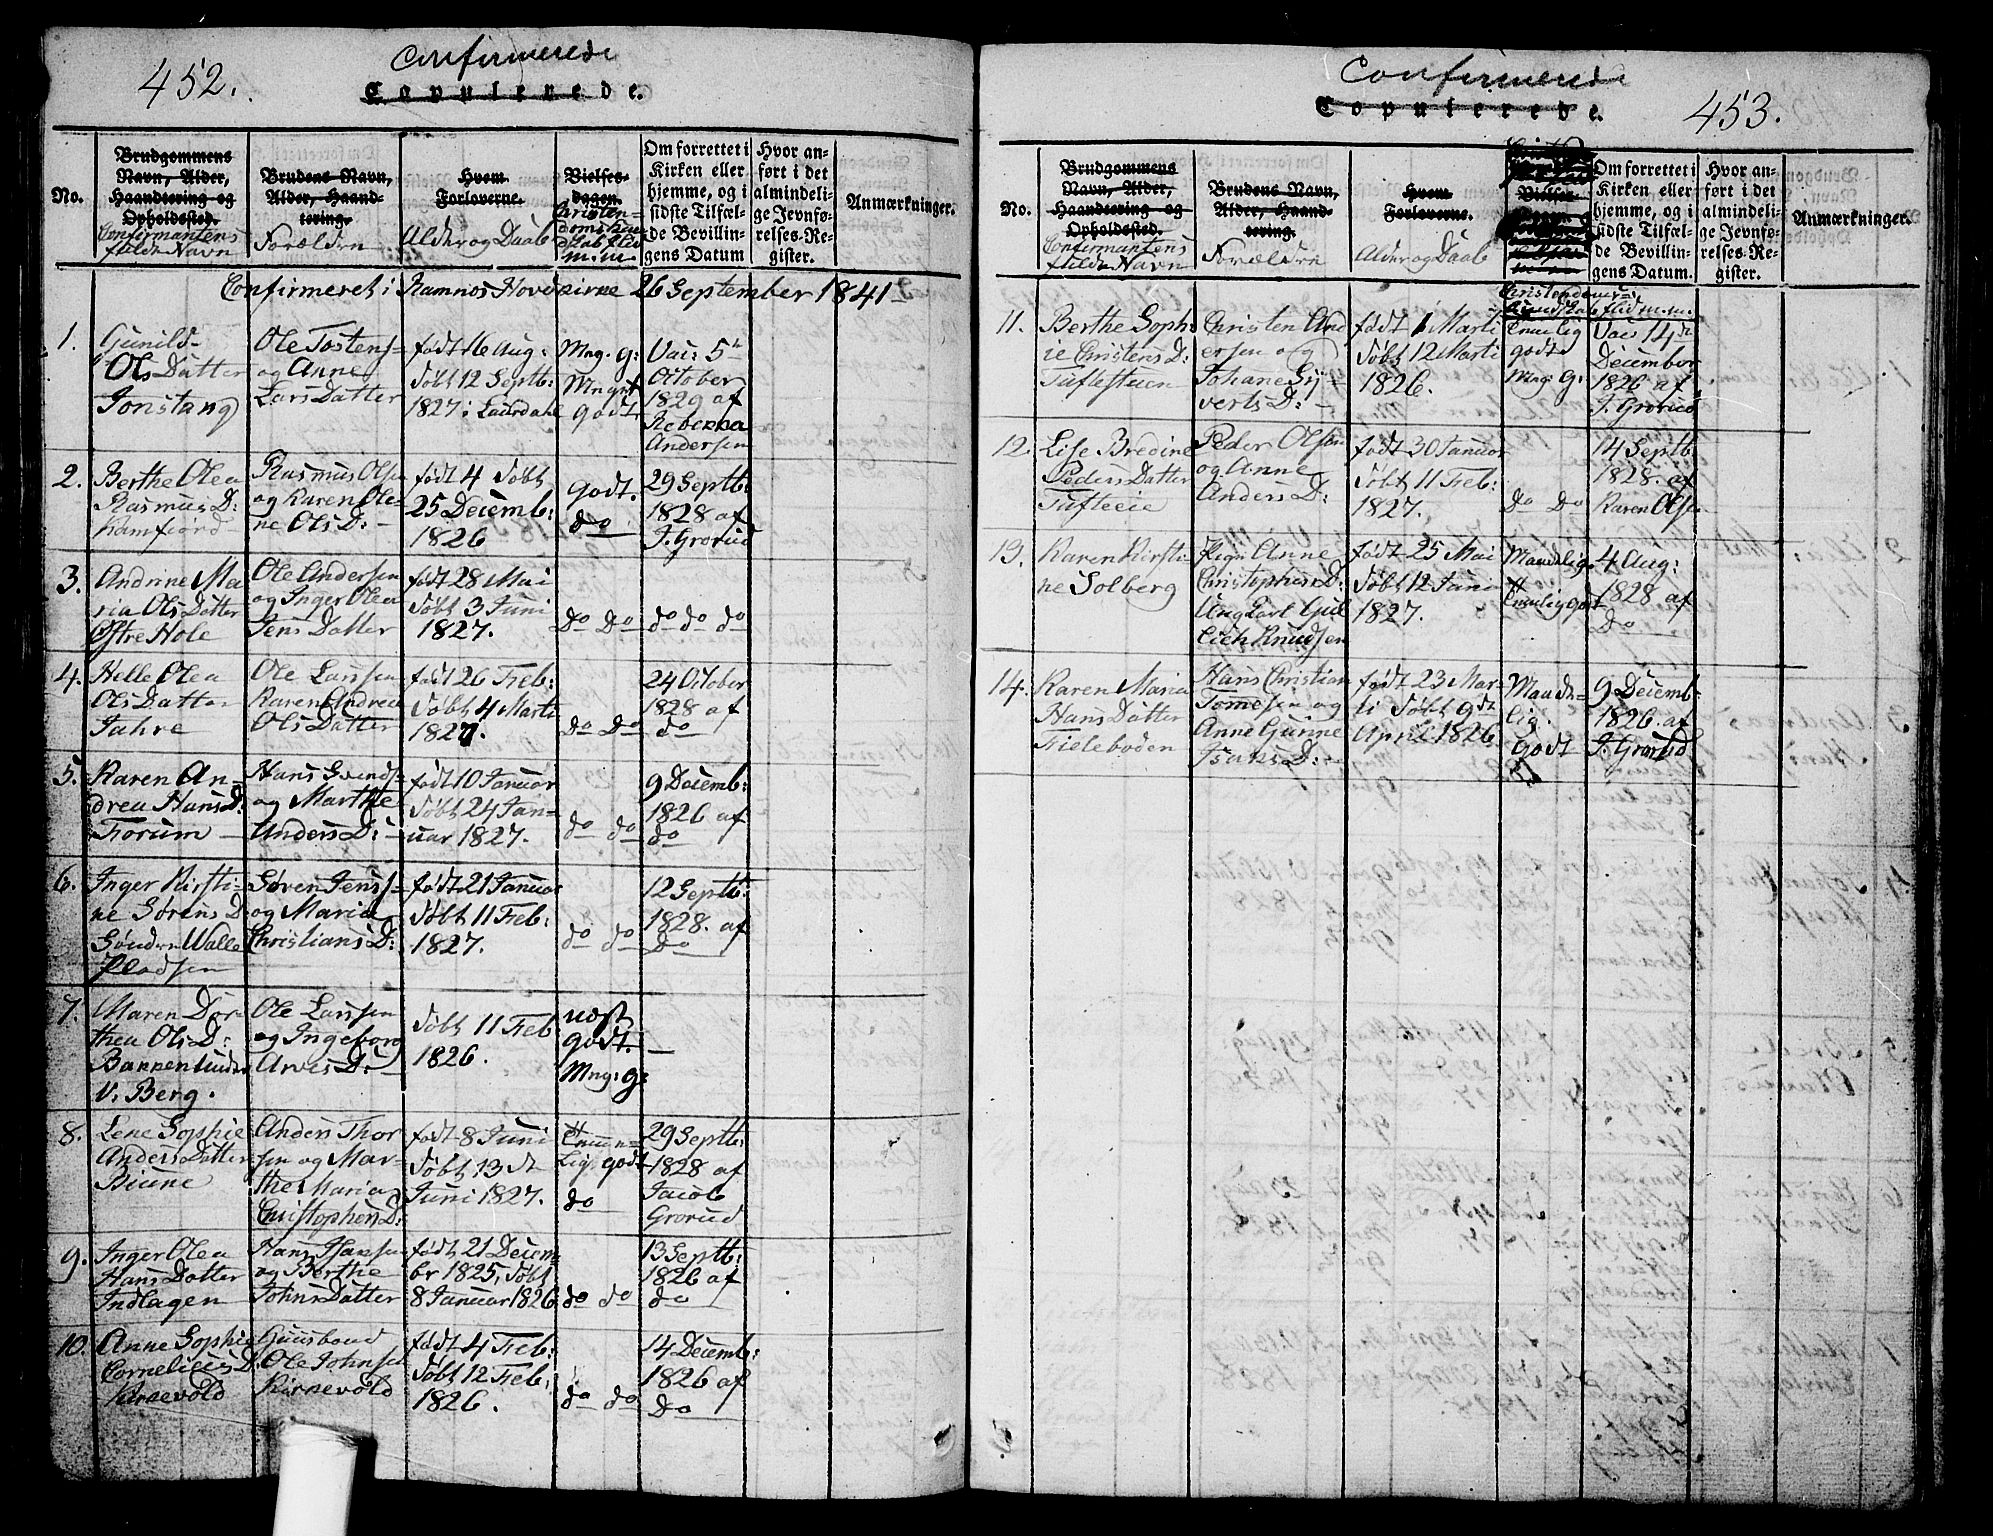 452.
Confirmerede
Copulerede.
No.
Brudgommens Navn, Alder, Haandtering og Opholdssted.
Confirmantens fulde Navn
Brudens Navn, Alder, Haandtering.
Forældre
Hvem Forloverne.
Alder og Daab
Vielsesdagen.
Christendomskundskab Flid m.m.
Om forrettet i Kirken eller hjemme, og i sidste Tilfælde Bevillingens Datum
Hvor anført i det almindelige Jevnførelses-Register.
Anmærkninger.
Confirmeret i Ramnos Hovedkirke 26 September 1841
1.
Gunild
Ols Datter
Jonstang
Ole Tostens-
og Anne
Lars Datter
født 16 Aug:
døbt 12 Septb:
1827 i Laurdahl
Mng. g:
Mng
godt
Vac: 5te
October
1829 af
Rebekka
Andersen
2.
Berthe Olea
Rasmus D:
Kamfjord
Rasmus Olsen
og Karen Ole-
ne Ols D: -
født 4 døbt
25 Decemb:
1826
godt.
do
29 Septb:
1828 af
J. Grorud
3.
Andrine Ma
ria Ols Datter
Østre Hole
Ole Andersen
og Inger Olea
Jens Datter
født 28 Mai
døbt 3 Juni
1827.
do do
do do do
4.
Helle Olea
Ols Datter
Jahre
Ole Larssen
Karen Andrea
Ols Datter
født 26 Feb:
døbt 4 Marti
1827.
do do
24 October
1828 af
do
5.
Karen An-
drea Hans D:
Forum -
Hans Svends-
og Marthe
Anders D: -
født 10 Januar
døbt 24 Jan-
uar 1827.
do do
9 Decemb:
1826 af
do
6.
Inger Kirsti-
ne Sørens D
Søndre Walle
Pladsen
Søren Jens-
og Maria
Christians D:
født 21 Januar
døbt 11 Feb:
1827.
do do
12 Septb:
1828. af
do
7.
Maren Dor
thea Ols D:
v. Berg.
Ole Larssen
og Ingeborg
Arves D: -
døbt 11 Feb
1826.
næst
godt.
Mng: g:
-
8.
Lene Sophie
Anders Datter
Biune
Anders Thor
sen og Mar-
the Maria
Christophers D:
født 8 Juni
døbt 13 dt
Juni 1827.
lig. godt
do
29 Septb:
1828 af
Jacob
Grorud
9.
Inger Olea
Hans Datter
Indlagen
Hans Hansen
og Berthe
Johns Datter
født 21 Decem-
br 1825, døbt
8 Januar 1826
do do
13 Septb:
1826 af
do
10.
Anne Sophie
Cornelius D.
Kirkevold
Huusbond
Ole Johnsen
Kirkevold
født 4 Feb:
døbt 12 Feb:
1826.
do do
14 Decemb:
1826 af
do
Confirmerede
Copulerede.
453.
No.
Brudgommens Navn, Alder, Haandtering og Opholdssted.
Confirmantens fulde Navn
Brudens Navn, Alder, Haandtering.
Forældre
Hvem Forloverne.
Alder og Daab
Om forrettet i Kirken eller hjemme, og i sidste Tilfælde Bevillingens Datum.
Hvor anført i det almindelige Jevnførelses-Register.
Anmærkninger.
Christendoms-
kundskab flid m.m.
11.
Berthe Soph
ie Christens D:
Tufletuen
Christen And
ersen og
Johane Sy-
verts D: -
født 1 Marti
døbt 12 Marti
1826.
godt
Mng: g:
Vac 14de
December
1826 af
J. Grorud
12.
Lise Bredine
Peders Datter
Tufteeie
Peder Olsen
og Anne
Anders D:
født 30 Januar
døbt 11 Feb:
1827.
do do
14 Septb
1828. af
Karen Olsen
13.
Karen Kirsti
ne Solberg
Pige Anne
Christophers D:
Ung Carl Gul
Knudsen
født 25 Mai
døbt 12 Juni
1827.
Maadelig
godt
4 Aug:
1828 af
do
14.
Karen Maria
Hans Datter
Fieleboden
Hans Christian
Tomesen og
Anne Gunne
Isaks D: -
født 23 Mar-
ti døbt 9de
April 1826
Maade-
lig.
godt
9 Decemb-
1826. af
J. Grorud